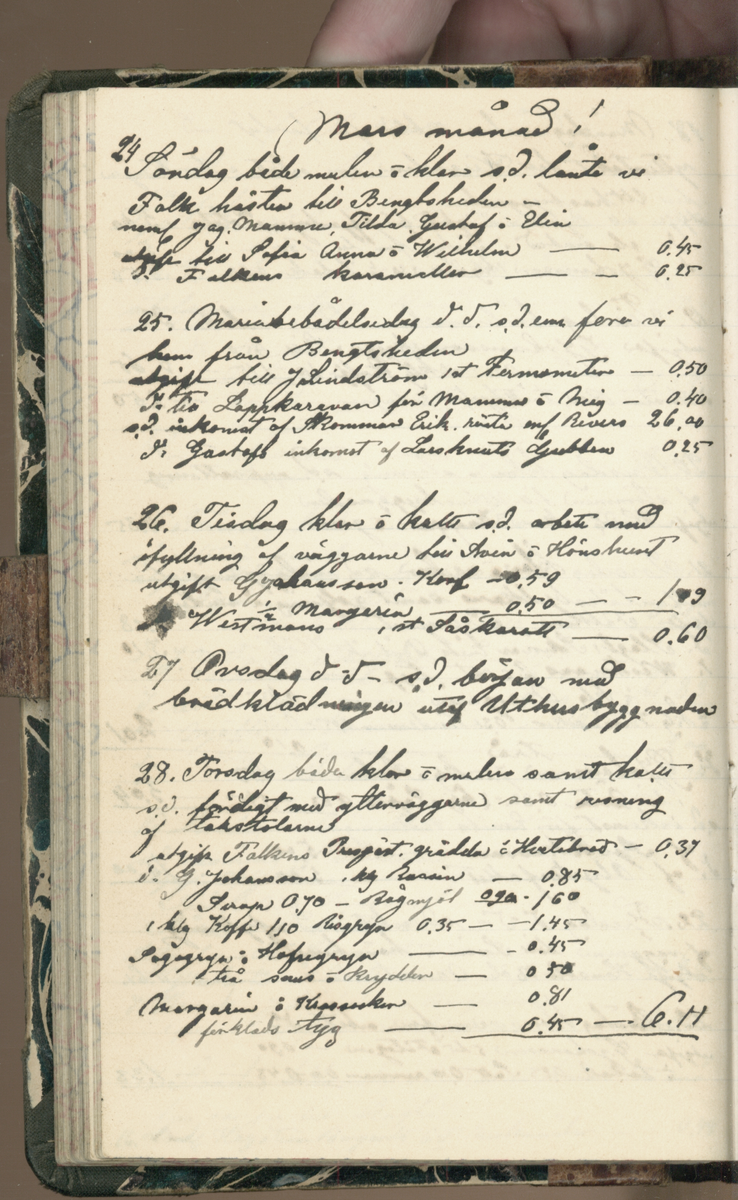 Mars månad!
24 Söndag både mulen o klar s.d. lånte vi
Falk hästen till Bengtsheden –
neml jag, Mamma, Tilda, Gustaf o Elin
utgift till Sofia Anna o Wilhelm — 0.45
d: Falkens karameller — — 0.25
25. Mariabebådelsedag d. d. s.d. em foro vi
hem från Bengtsheden
utgift till J Lindström 1 st Termometer — 0.50
D: tio Lappkaravan för Mamma o Mig — 0.40
s.d. inkomst af Erik 26,00
D: Gustafs inkomst af Lars Knuts Gubben 0.25
26. Tisdag klar o kallt s.d. arbete med
ifyllning af väggarne till Svin o Hönshuset
utgift G Johansson. Korf — 0.59
½ Margarin — 0.50 — — 1.09
Westmans 1 st — 0.60
27 Onsdag d – d – s.d. början med
brädklädningen utaf Uthusbyggnaden
28. Torsdag både klar o mulen samt kallt
s.d. färdigt med ytterväggarne samt resning
af takstolarne
utgift Falkens grädda o Hvetebröd — 0.37
d: G. Johansson 1 kg — 0.85
Sirap 0.70 — Rågmjöl 0.90 – 1 60
1 kg Kaffe 1,10 Risgryn 0.35 — – 1.45
Sagogryn o Hafregryn — – 0.45
två sous o Kryddor — 0 50
Margarin o Krossocker — 0.81
Tyg — 0.45 — 6.11